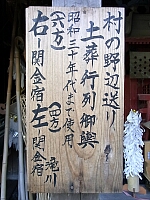 村の野辺送り
土葬行列御輿
昭和三十年代まで使用
(六方)
右ー関金宿
左ー関金宿
(四方)
滝川